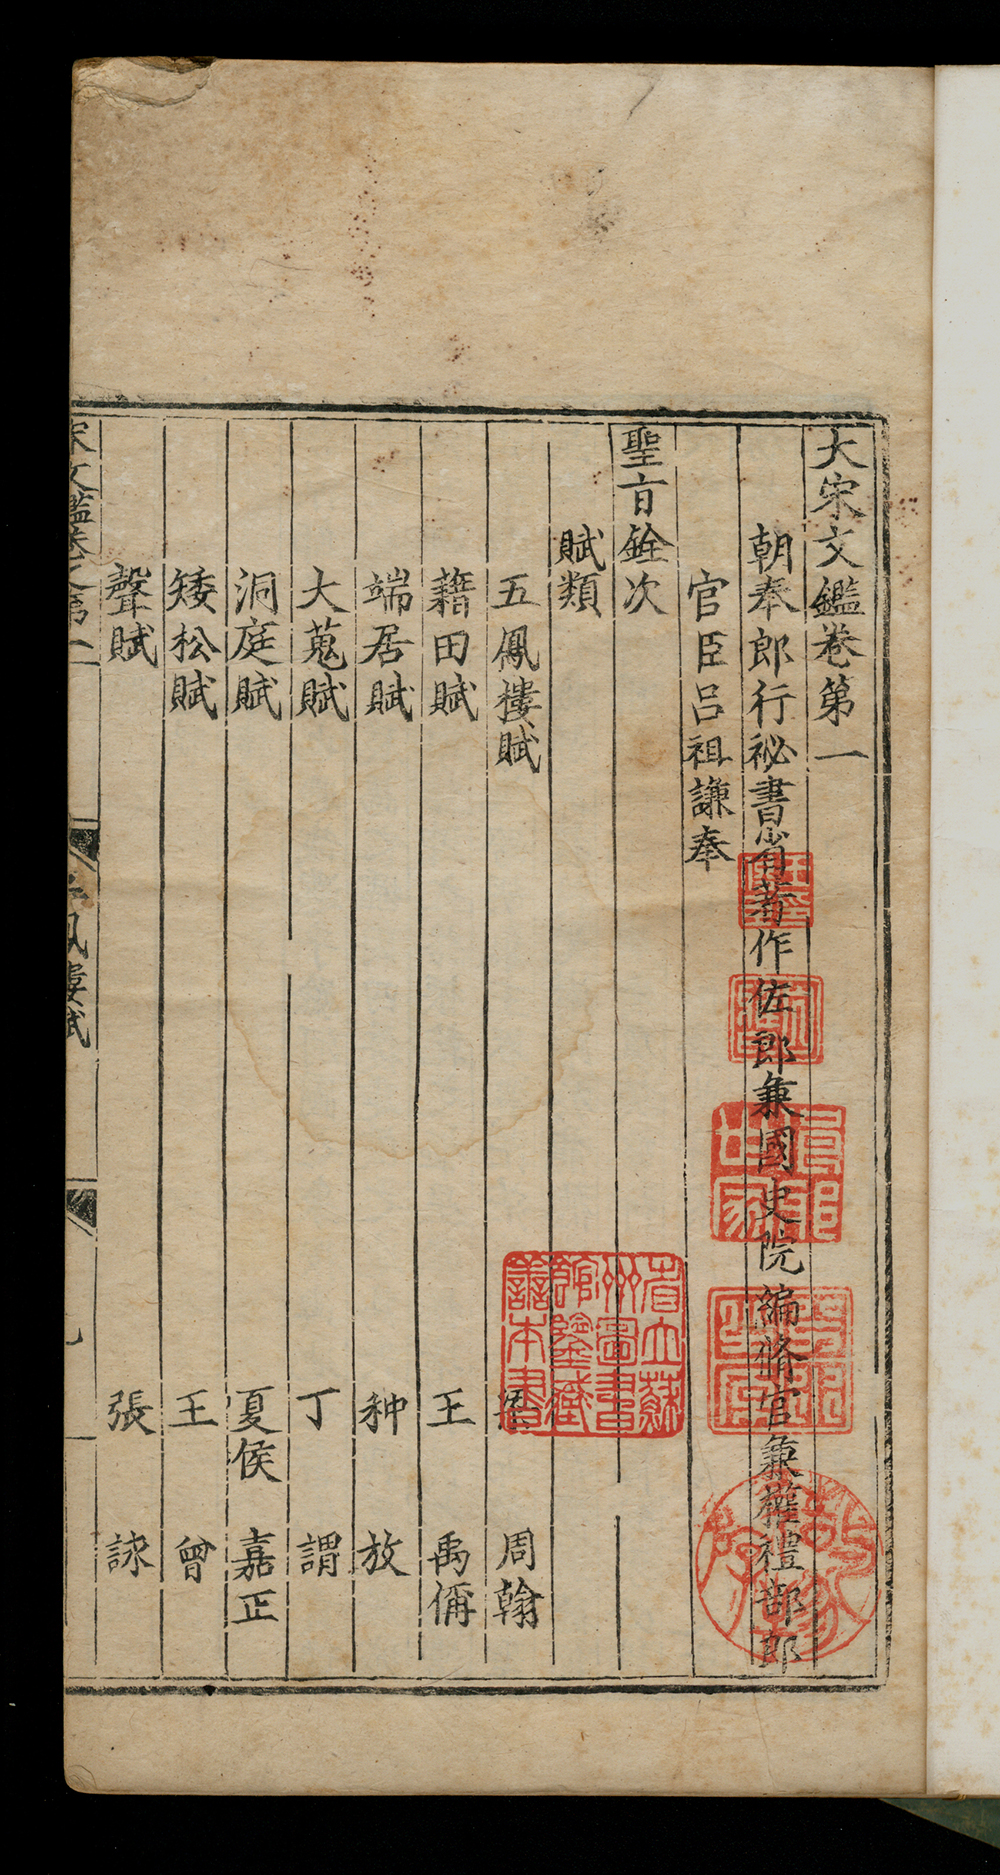 大宋文鑑卷第一
朝奉郎行祕書省著作佐郎兼國史院編脩官兼權禮部郎
官臣呂祖謙奉
聖旨銓次
賦類
五鳳樓賦 梁 周翰
藉田賦 王 禹偁
端居賦 种 放
大蒐賦 丁 謂
洞庭賦 夏侯 嘉正
矮松賦 王 曾
聲賦 張 詠
宋文鑑卷之第一
五鳳樓賦
省立蘇
州圖書
館鑒藏
善本書